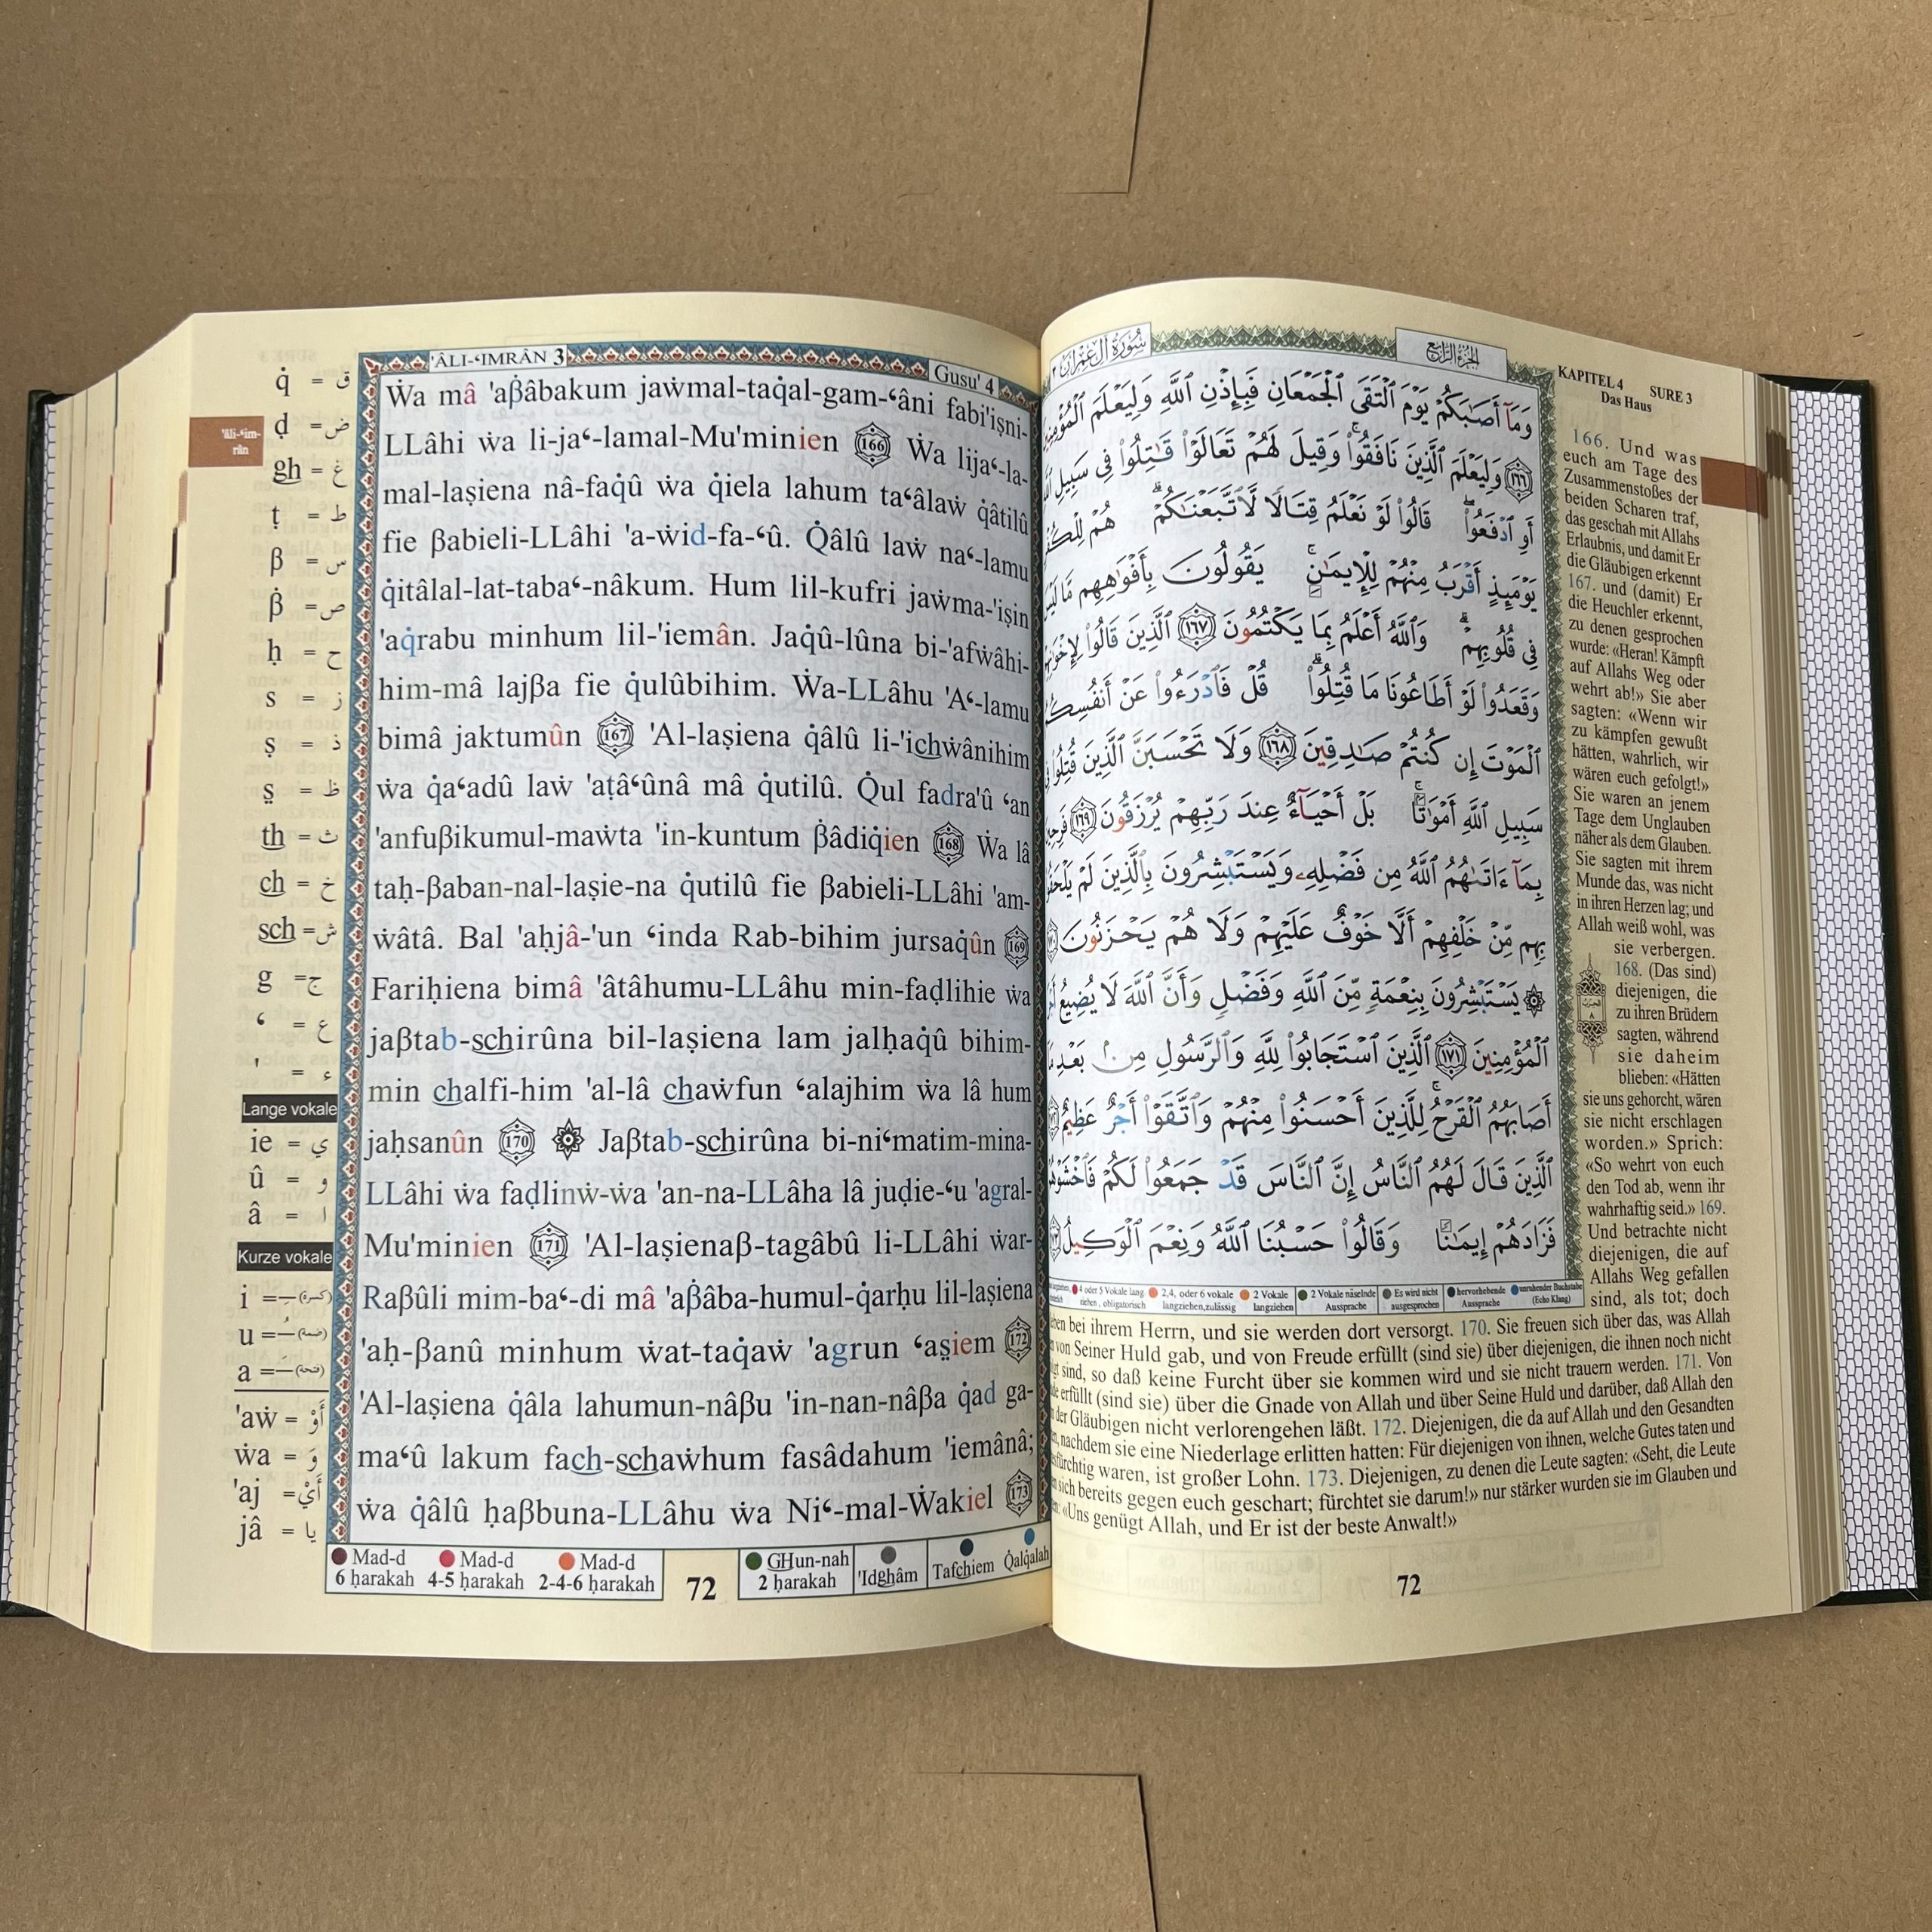 'ÂLI-‘IMRÂN 3
Gusu' 4
'âli-‘im-
rân
q̇ = ق
ḍ = ض
gh = غ
ṭ = ط
β = س
β̇ = ص
ḥ = ح
s = ز
ṣ = ذ
s̤ = ظ
th = ث
ch = خ
sch = ش
g = ج
‘ = ع
' = ء
Lange vokale
ie = ي
û = و
â = ا
Kurze vokale
i = ـِ (كسرة)
u = ـُ (ضمة)
a = ـَ (فتحة)
'aẇ = أَوْ
ẇa = وَ
'aj = أَيْ
jâ = يا
Ẇa mâ 'aβ̇âbakum jaẇmal-taq̇al-gam-‘âni fabi'iṣni-
LLâhi ẇa li-ja‘-lamal-Mu'minien (166) Ẇa lija‘-la-
mal-laṣiena nâ-faq̇û ẇa q̇iela lahum ta‘âlaẇ q̇âtilû
fie βabieli-LLâhi 'a-ẇid-fa-‘û. Q̇âlû laẇ na‘-lamu
q̇itâlal-lat-taba‘-nâkum. Hum lil-kufri jaẇma-'iṣin
'aq̇rabu minhum lil-'iemân. Jaq̇û-lûna bi-'afẇâhi-
him-mâ lajβa fie q̇ulûbihim. Ẇa-LLâhu 'A‘-lamu
bimâ jaktumûn (167) 'Al-laṣiena q̇âlû li-'ichẇânihim
ẇa q̇a‘adû laẇ 'aṭâ‘ûnâ mâ q̇utilû. Q̇ul fadra'û ‘an
'anfuβikumul-maẇta 'in-kuntum β̇âdiq̇ien (168) Ẇa lâ
taḥ-βaban-nal-laṣie-na q̇utilû fie βabieli-LLâhi 'am-
ẇâtâ. Bal 'aḥjâ-'un ‘inda Rab-bihim jursaq̇ûn (169)
Fariḥiena bimâ 'âtâhumu-LLâhu min-faḍlihie ẇa
jaβtab-schirûna bil-laṣiena lam jalḥaq̇û bihim-
min chalfi-him 'al-lâ chaẇfun ‘alajhim ẇa lâ hum
jaḥsanûn (170) ۞ Jaβtab-schirûna bi-ni‘matim-mina-
LLâhi ẇa faḍlinẇ-ẇa 'an-na-LLâha lâ juḍie-‘u 'agral-
Mu'minien (171) 'Al-laṣienaβ-tagâbû li-LLâhi ẇar-
Raβûli mim-ba‘-di mâ 'aβ̇âba-humul-q̇arḥu lil-laṣiena
'aḥ-βanû minhum ẇat-taq̇aẇ 'agrun ‘as̤iem (172)
'Al-laṣiena q̇âla lahumun-nâβu 'in-nan-nâβa q̇ad ga-
ma‘û lakum fach-schaẇhum fasâdahum 'iemânâ;
ẇa q̇âlû ḥaβbuna-LLâhu ẇa Ni‘-mal-Ẇakiel (173)
Mad-d
6 ḥarakah
Mad-d
4-5 ḥarakah
Mad-d
2-4-6 ḥarakah
72
GHun-nah
2 ḥarakah
'Idghâm
Tafchiem
Q̇alq̇alah
سُورَةُ آلِ عِمْرَانَ ٣
الجزء الرابع
وَمَآ أَصَٰبَكُمْ يَوْمَ ٱلْتَقَى ٱلْجَمْعَانِ فَبِإِذْنِ ٱللَّهِ وَلِيَعْلَمَ
١٦٦ وَلِيَعْلَمَ ٱلَّذِينَ نَافَقُوا۟ۚ وَقِيلَ لَهُمْ تَعَالَوْا۟ قَٰتِلُوا۟ فِى سَبِيلِ
أَوِ ٱدْفَعُوا۟ۖ قَالُوا۟ لَوْ نَعْلَمُ قِتَالًا لَّٱتَّبَعْنَٰكُمْۗ هُمْ
يَوْمَئِذٍ أَقْرَبُ مِنْهُمْ لِلْإِيمَٰنِۚ يَقُولُونَ بِأَفْوَٰهِهِم مَّا
فِى قُلُوبِهِمْۗ وَٱللَّهُ أَعْلَمُ بِمَا يَكْتُمُونَ ١٦٧ ٱلَّذِينَ قَالُوا۟
وَقَعَدُوا۟ لَوْ أَطَاعُونَا مَا قُتِلُوا۟ۗ قُلْ فَٱدْرَءُوا۟ عَنْ
ٱلْمَوْتَ إِن كُنتُمْ صَٰدِقِينَ ١٦٨ وَلَا تَحْسَبَنَّ ٱلَّذِينَ قُتِلُوا۟
سَبِيلِ ٱللَّهِ أَمْوَٰتًۢاۚ بَلْ أَحْيَآءٌ عِندَ رَبِّهِمْ يُرْزَقُونَ ١٦٩
بِمَآ ءَاتَىٰهُمُ ٱللَّهُ مِن فَضْلِهِۦ وَيَسْتَبْشِرُونَ بِٱلَّذِينَ لَمْ
بِهِم مِّنْ خَلْفِهِمْ أَلَّا خَوْفٌ عَلَيْهِمْ وَلَا هُمْ يَحْزَنُونَ
۞ يَسْتَبْشِرُونَ بِنِعْمَةٍ مِّنَ ٱللَّهِ وَفَضْلٍ وَأَنَّ ٱللَّهَ لَا يُضِيعُ
ٱلْمُؤْمِنِينَ ١٧١ ٱلَّذِينَ ٱسْتَجَابُوا۟ لِلَّهِ وَٱلرَّسُولِ مِنۢ بَعْدِ
أَصَابَهُمُ ٱلْقَرْحُۚ لِلَّذِينَ أَحْسَنُوا۟ مِنْهُمْ وَٱتَّقَوْا۟ أَجْرٌ عَظِيمٌ
ٱلَّذِينَ قَالَ لَهُمُ ٱلنَّاسُ إِنَّ ٱلنَّاسَ قَدْ جَمَعُوا۟ لَكُمْ
فَزَادَهُمْ إِيمَٰنًا وَقَالُوا۟ حَسْبُنَا ٱللَّهُ وَنِعْمَ ٱلْوَكِيلُ
4 oder 5 Vokale lang
ziehen , obligatorisch
2,4, oder 6 vokale
langziehen,zulässig
2 Vokale
langziehen
2 Vokale näselnde
Aussprache
Es wird nicht
ausgesprochen
hervorhebende
Aussprache
unruhender Buchstabe
(Echo Klang)
KAPITEL 4 SURE 3
Das Haus
166. Und was
euch am Tage des
Zusammenstoßes der
beiden Scharen traf,
das geschah mit Allahs
Erlaubnis, und damit Er
die Gläubigen erkennt
167. und (damit) Er
die Heuchler erkennt,
zu denen gesprochen
wurde: «Heran! Kämpft
auf Allahs Weg oder
wehrt ab!» Sie aber
sagten: «Wenn wir
zu kämpfen gewußt
hätten, wahrlich, wir
wären euch gefolgt!»
Sie waren an jenem
Tage dem Unglauben
näher als dem Glauben.
Sie sagten mit ihrem
Munde das, was nicht
in ihren Herzen lag; und
Allah weiß wohl, was
sie verbergen.
168. (Das sind)
diejenigen, die
zu ihren Brüdern
sagten, während
sie daheim
blieben: «Hätten
sie uns gehorcht, wären
sie nicht erschlagen
worden.» Sprich:
«So wehrt von euch
den Tod ab, wenn ihr
wahrhaftig seid.» 169.
Und betrachte nicht
diejenigen, die auf
Allahs Weg gefallen
sind, als tot; doch
bei ihrem Herrn, und sie werden dort versorgt. 170. Sie freuen sich über das, was Allah
von Seiner Huld gab, und von Freude erfüllt (sind sie) über diejenigen, die ihnen noch nicht
sind, so daß keine Furcht über sie kommen wird und sie nicht trauern werden. 171. Von
erfüllt (sind sie) über die Gnade von Allah und über Seine Huld und darüber, daß Allah den
der Gläubigen nicht verlorengehen läßt. 172. Diejenigen, die da auf Allah und den Gesandten
nachdem sie eine Niederlage erlitten hatten: Für diejenigen von ihnen, welche Gutes taten und
waren, ist großer Lohn. 173. Diejenigen, zu denen die Leute sagten: «Seht, die Leute
sich bereits gegen euch geschart; fürchtet sie darum!» nur stärker wurden sie im Glauben und
«Uns genügt Allah, und Er ist der beste Anwalt!»
72